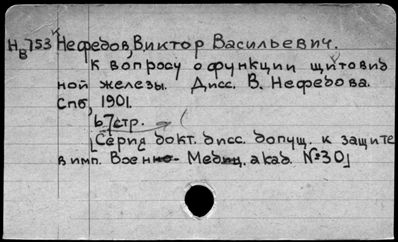 Нв753 Нефедов, Виктор Васильевич.
К вопросу о функции щитовид
ной железы. Дисс. В. Нефедова.
Спб, 1901.
67стр.
[Серия докт. дисс. допущ. к защите
в имп. Военно-Медиц. акад. №30]